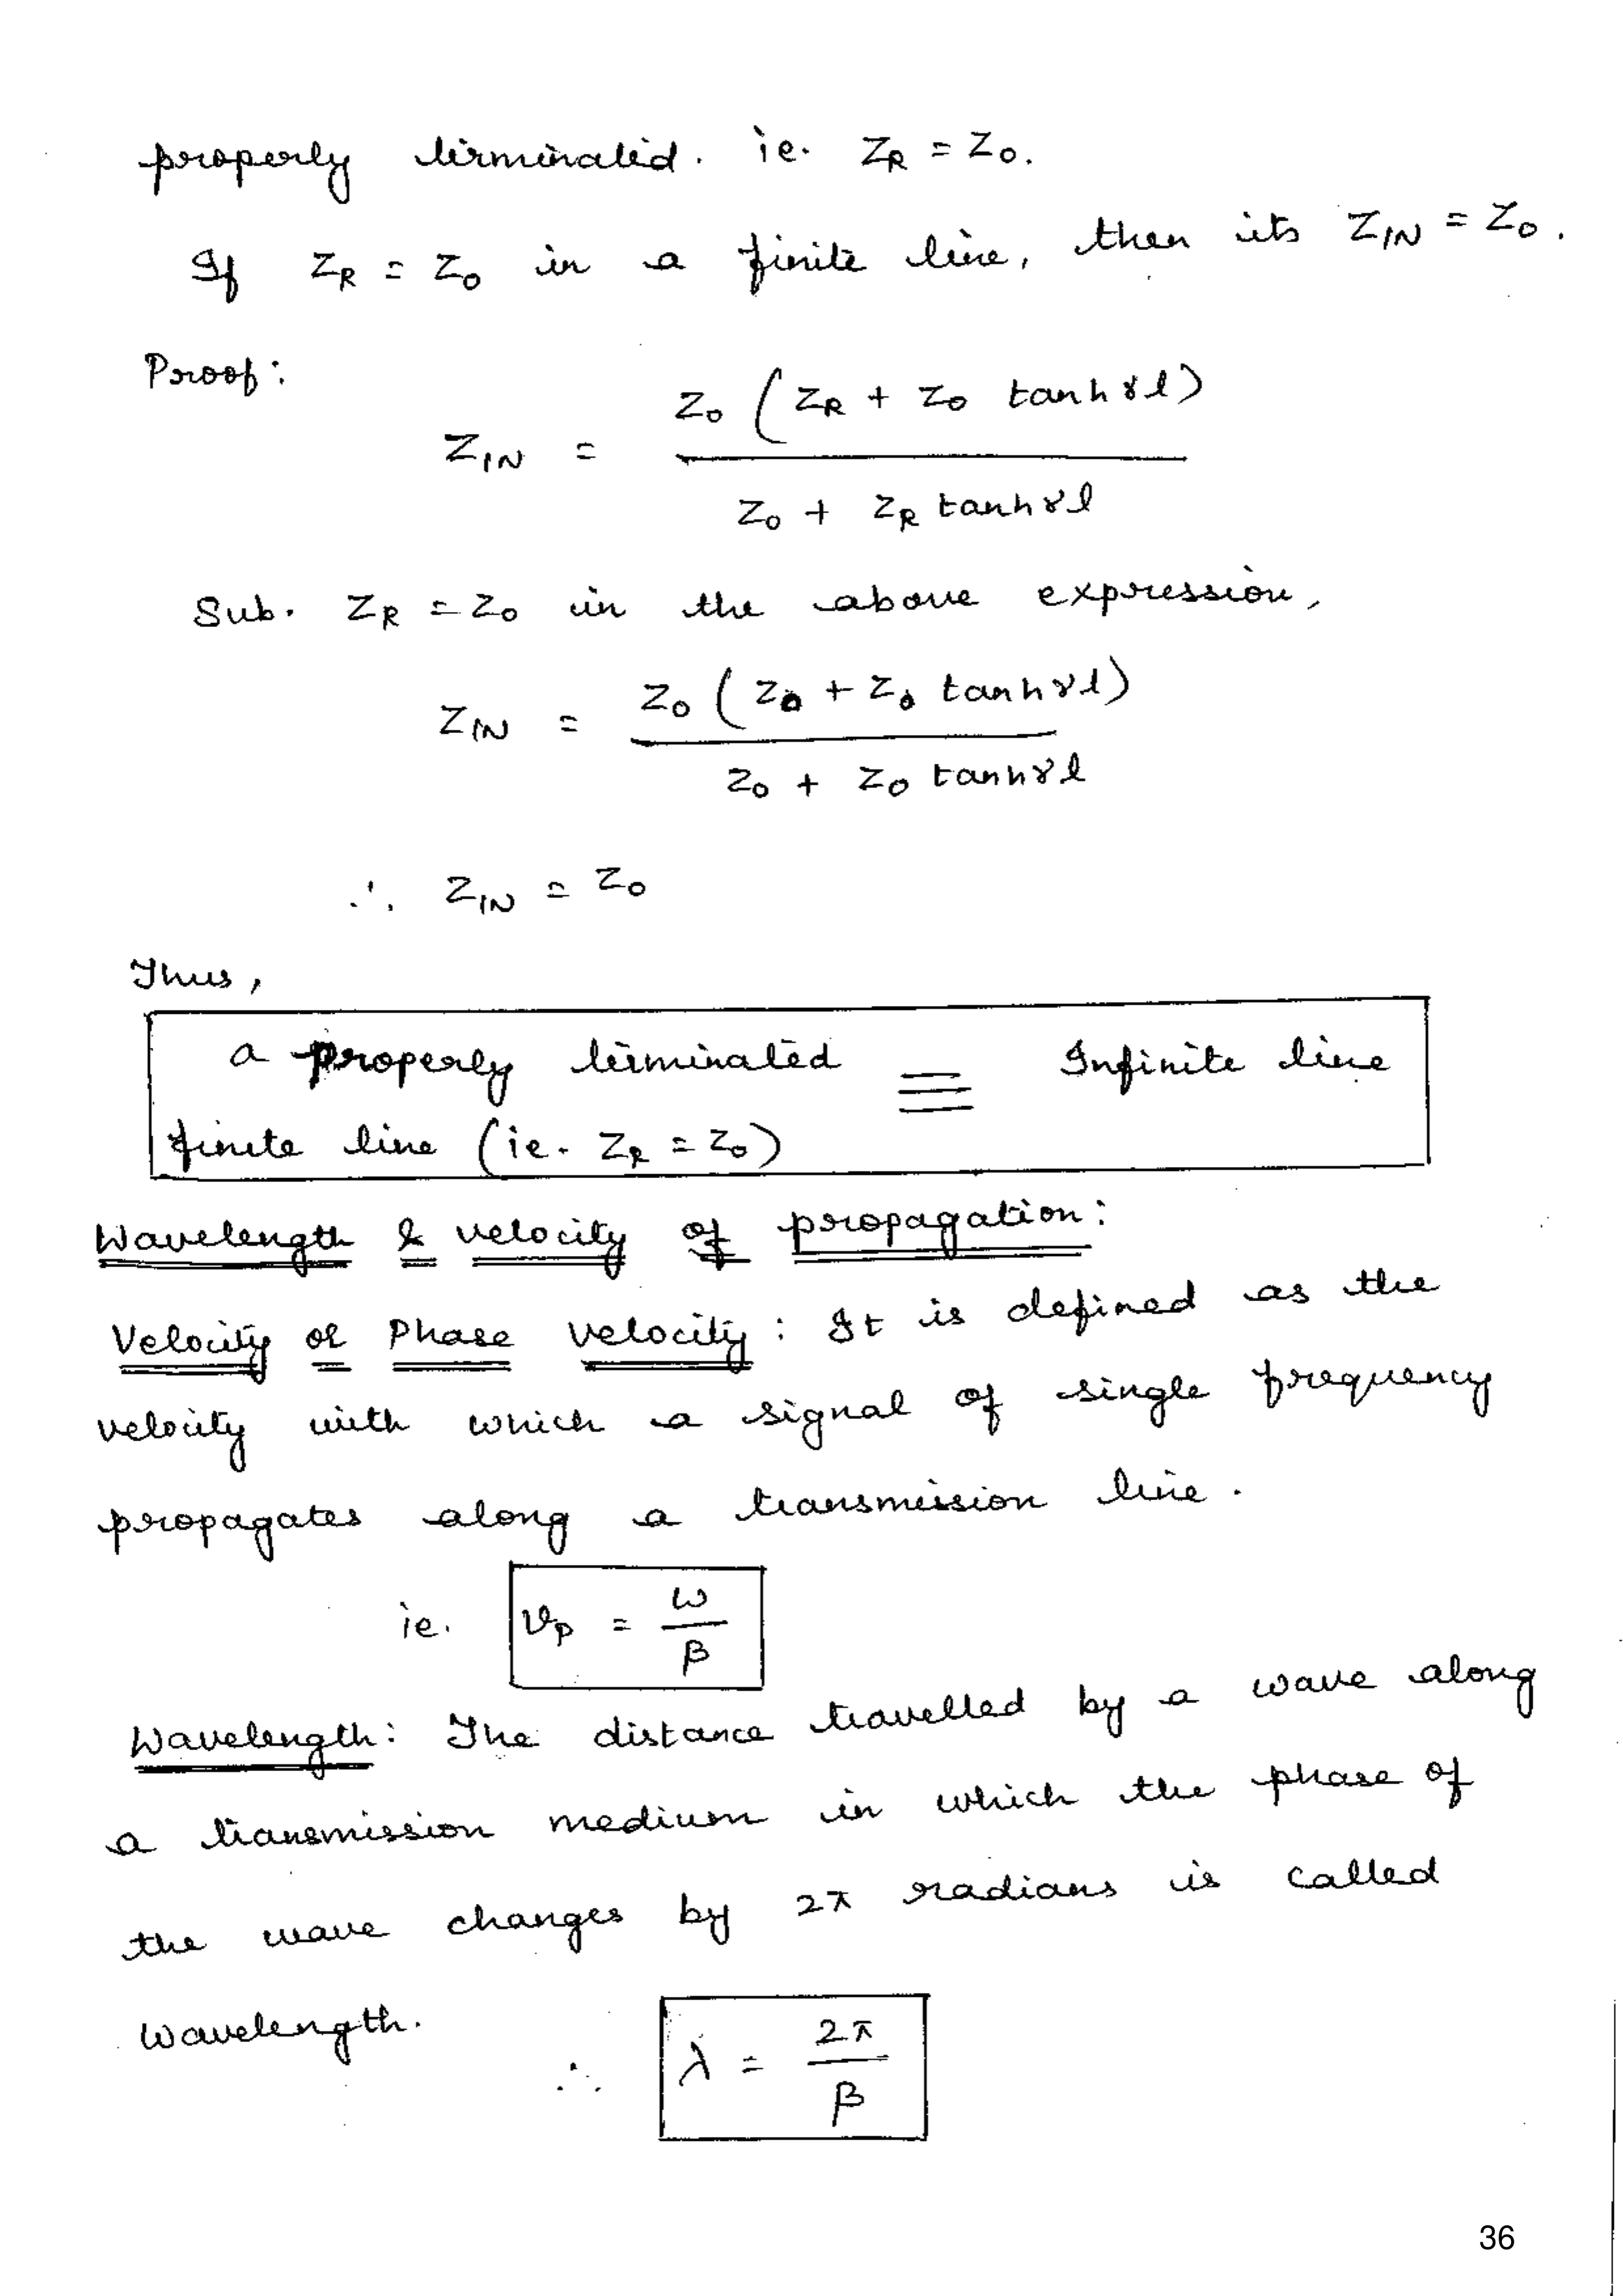 properly terminated. ie. Z_R = Z_0.
If Z_R = Z_0 in a finite line, then its Z_IN = Z_0.
Proof:
Z_IN = Z_0 (Z_R + Z_0 tanh γl) / Z_0 + Z_R tanh γl
Sub. Z_R = Z_0 in the above expression,
Z_IN = Z_0 (Z_0 + Z_0 tanh γl) / Z_0 + Z_0 tanh γl
∴ Z_IN = Z_0
Thus,
a properly terminated ≡ Infinite line
finite line (ie. Z_R = Z_0)
Wavelength & velocity of propagation:
Velocity or Phase velocity: It is defined as the
velocity with which a signal of single frequency
propagates along a transmission line.
ie. υ_p = ω / β
Wavelength: The distance travelled by a wave along
a transmission medium in which the phase of
the wave changes by 2π radians is called
wavelength.
∴ λ = 2π / β
36